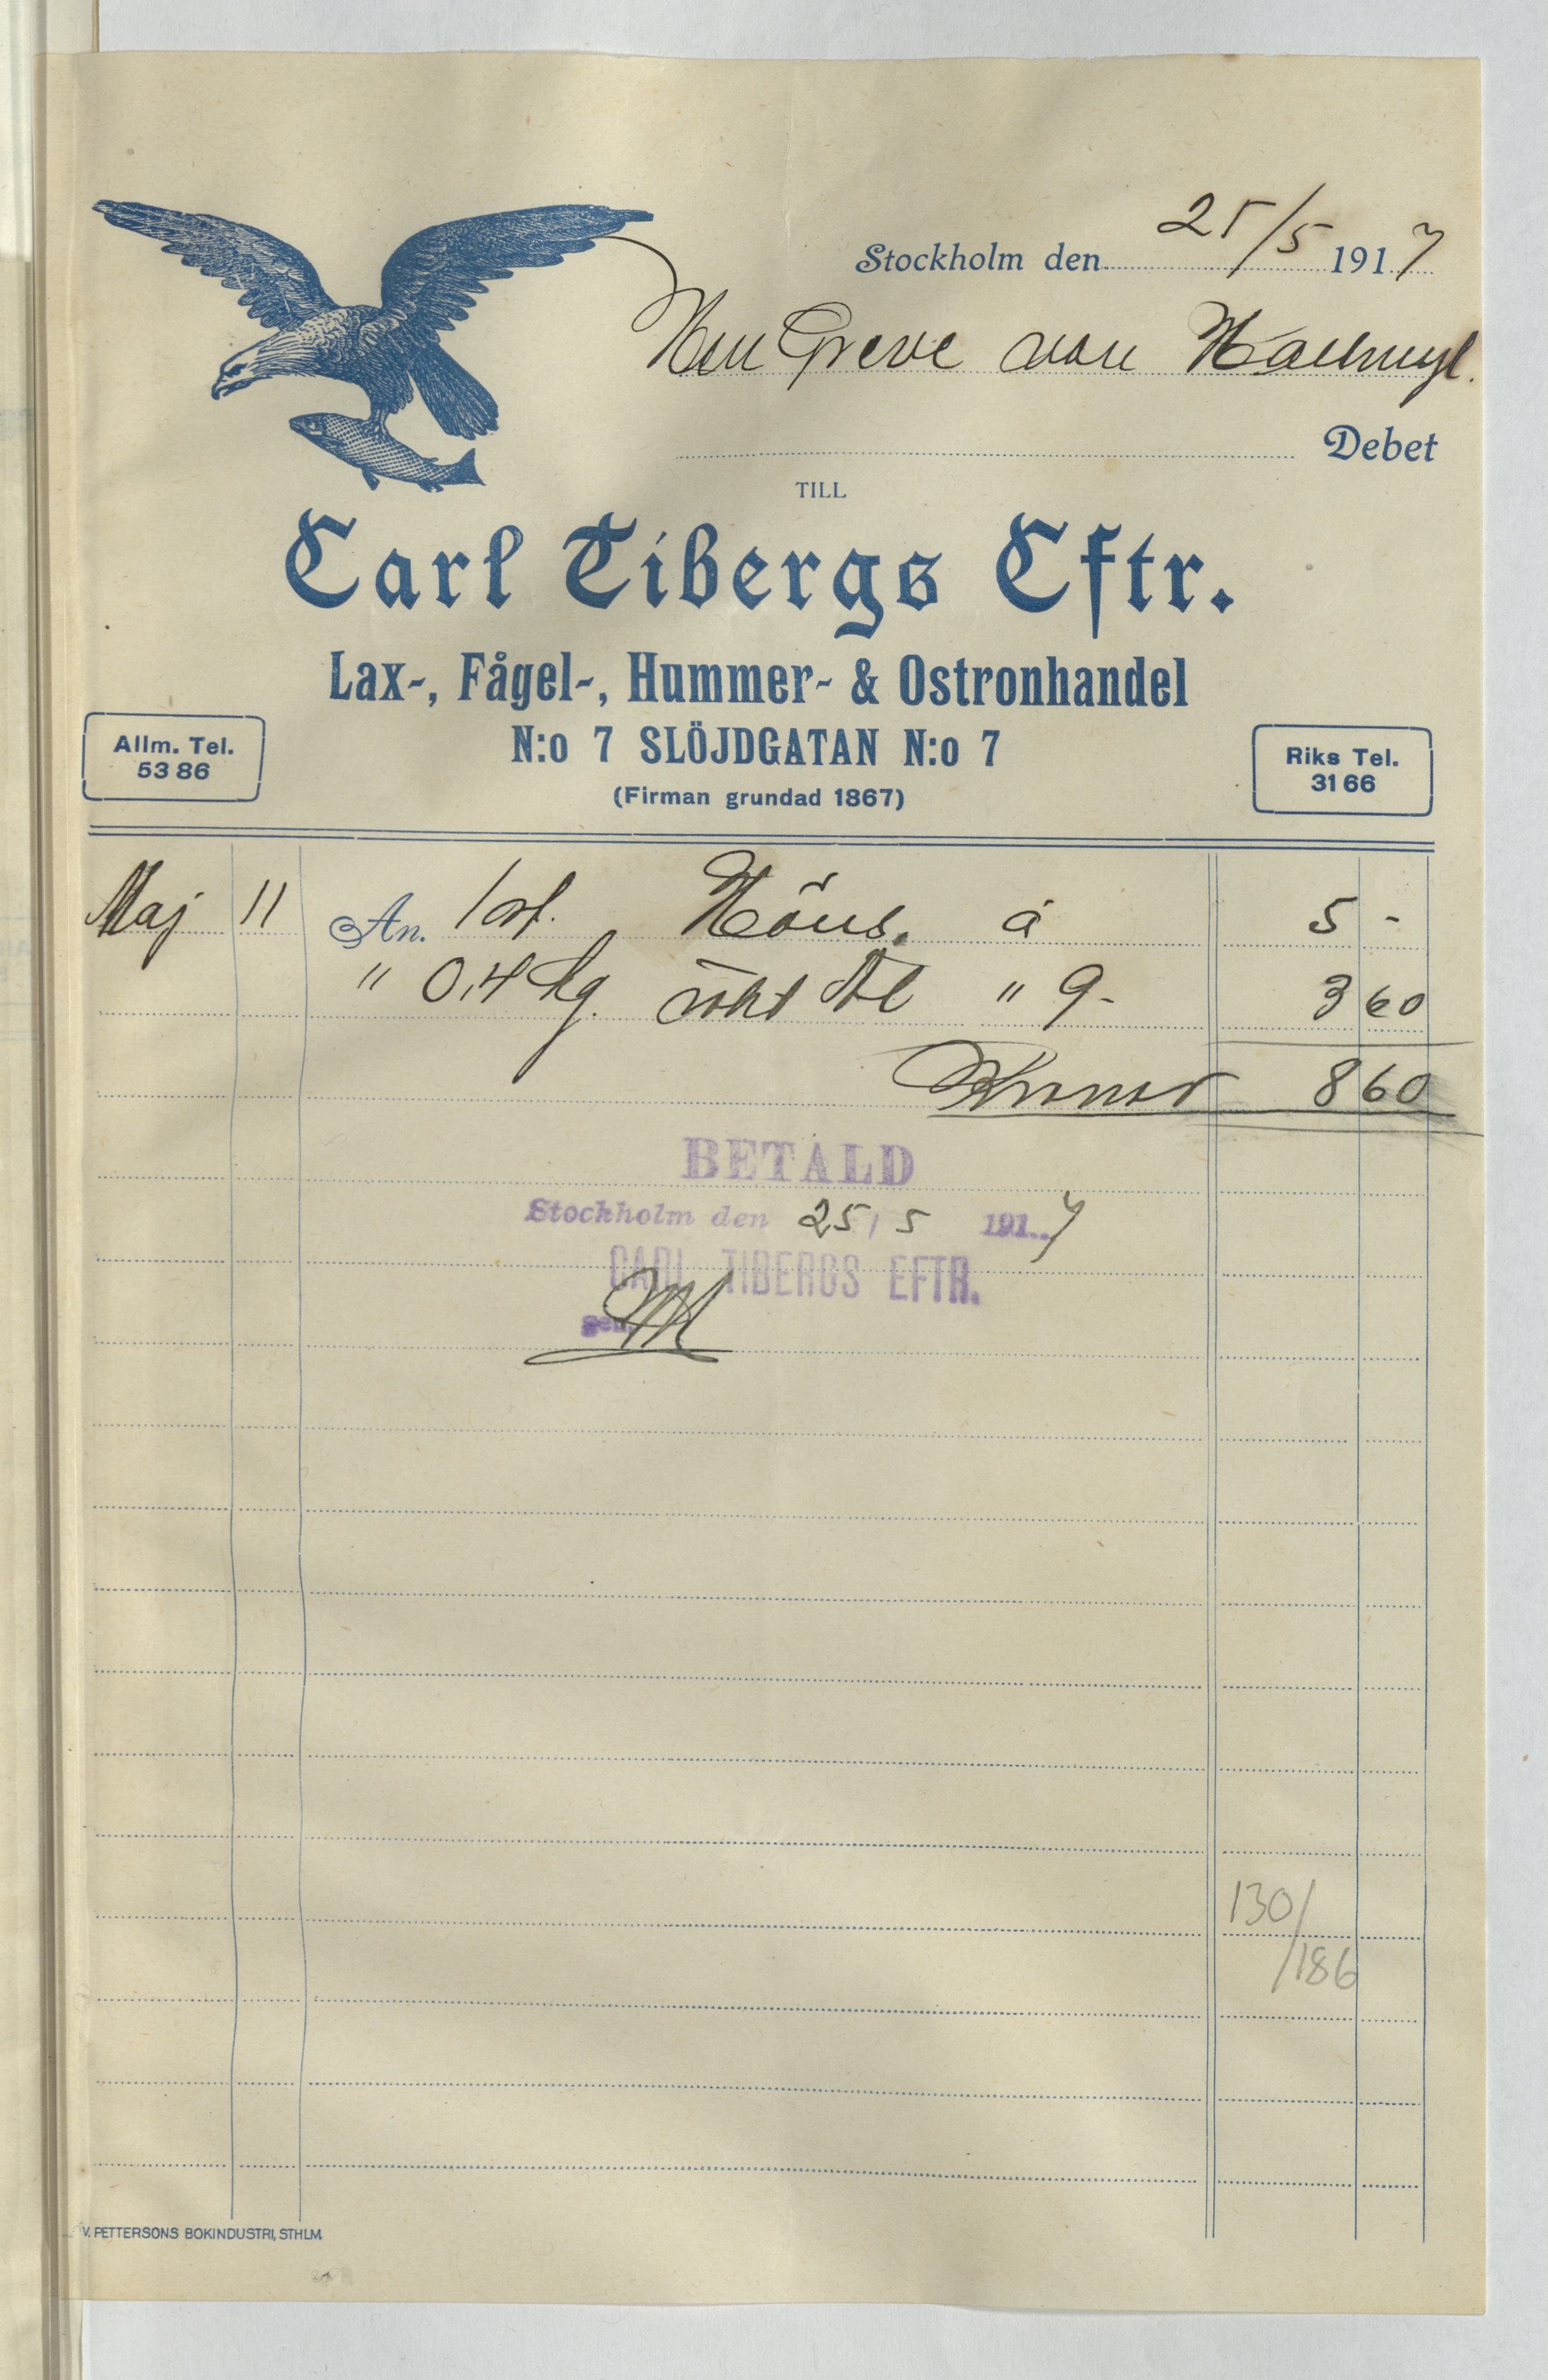 Stockholm den 25/5 1917
Herr Greve von Hallwyl.
Debet
TILL
Carl Tibergs Eftr.
Lax-, Fågel-, Hummer- & Ostronhandel
N:o 7 SLÖJDGATAN N:o 7
(Firman grundad 1867)
Allm. Tel.
53 86
Riks Tel.
31 66
Maj 11 An. 1 st. Höns. á 5 -
" 0,4 kg. rökt Ål " 9- 3 60
Kronor 8 60
BETALD
Stockholm den 25/5 1917
CARL TIBERGS EFTR.
130/
/186
V. PETTERSONS BOKINDUSTRI, STHLM